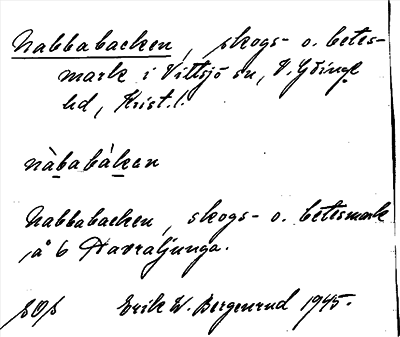 Nabbabacken, skogs- o. betes-
mark i Vittsjö sn, V. Göinge
hd, Krist. l.
nàbabàkan
Nabbabacken, skogs- o. betesmark
å 6 Havraljunga.
Erik W. Bergenrud 1945.